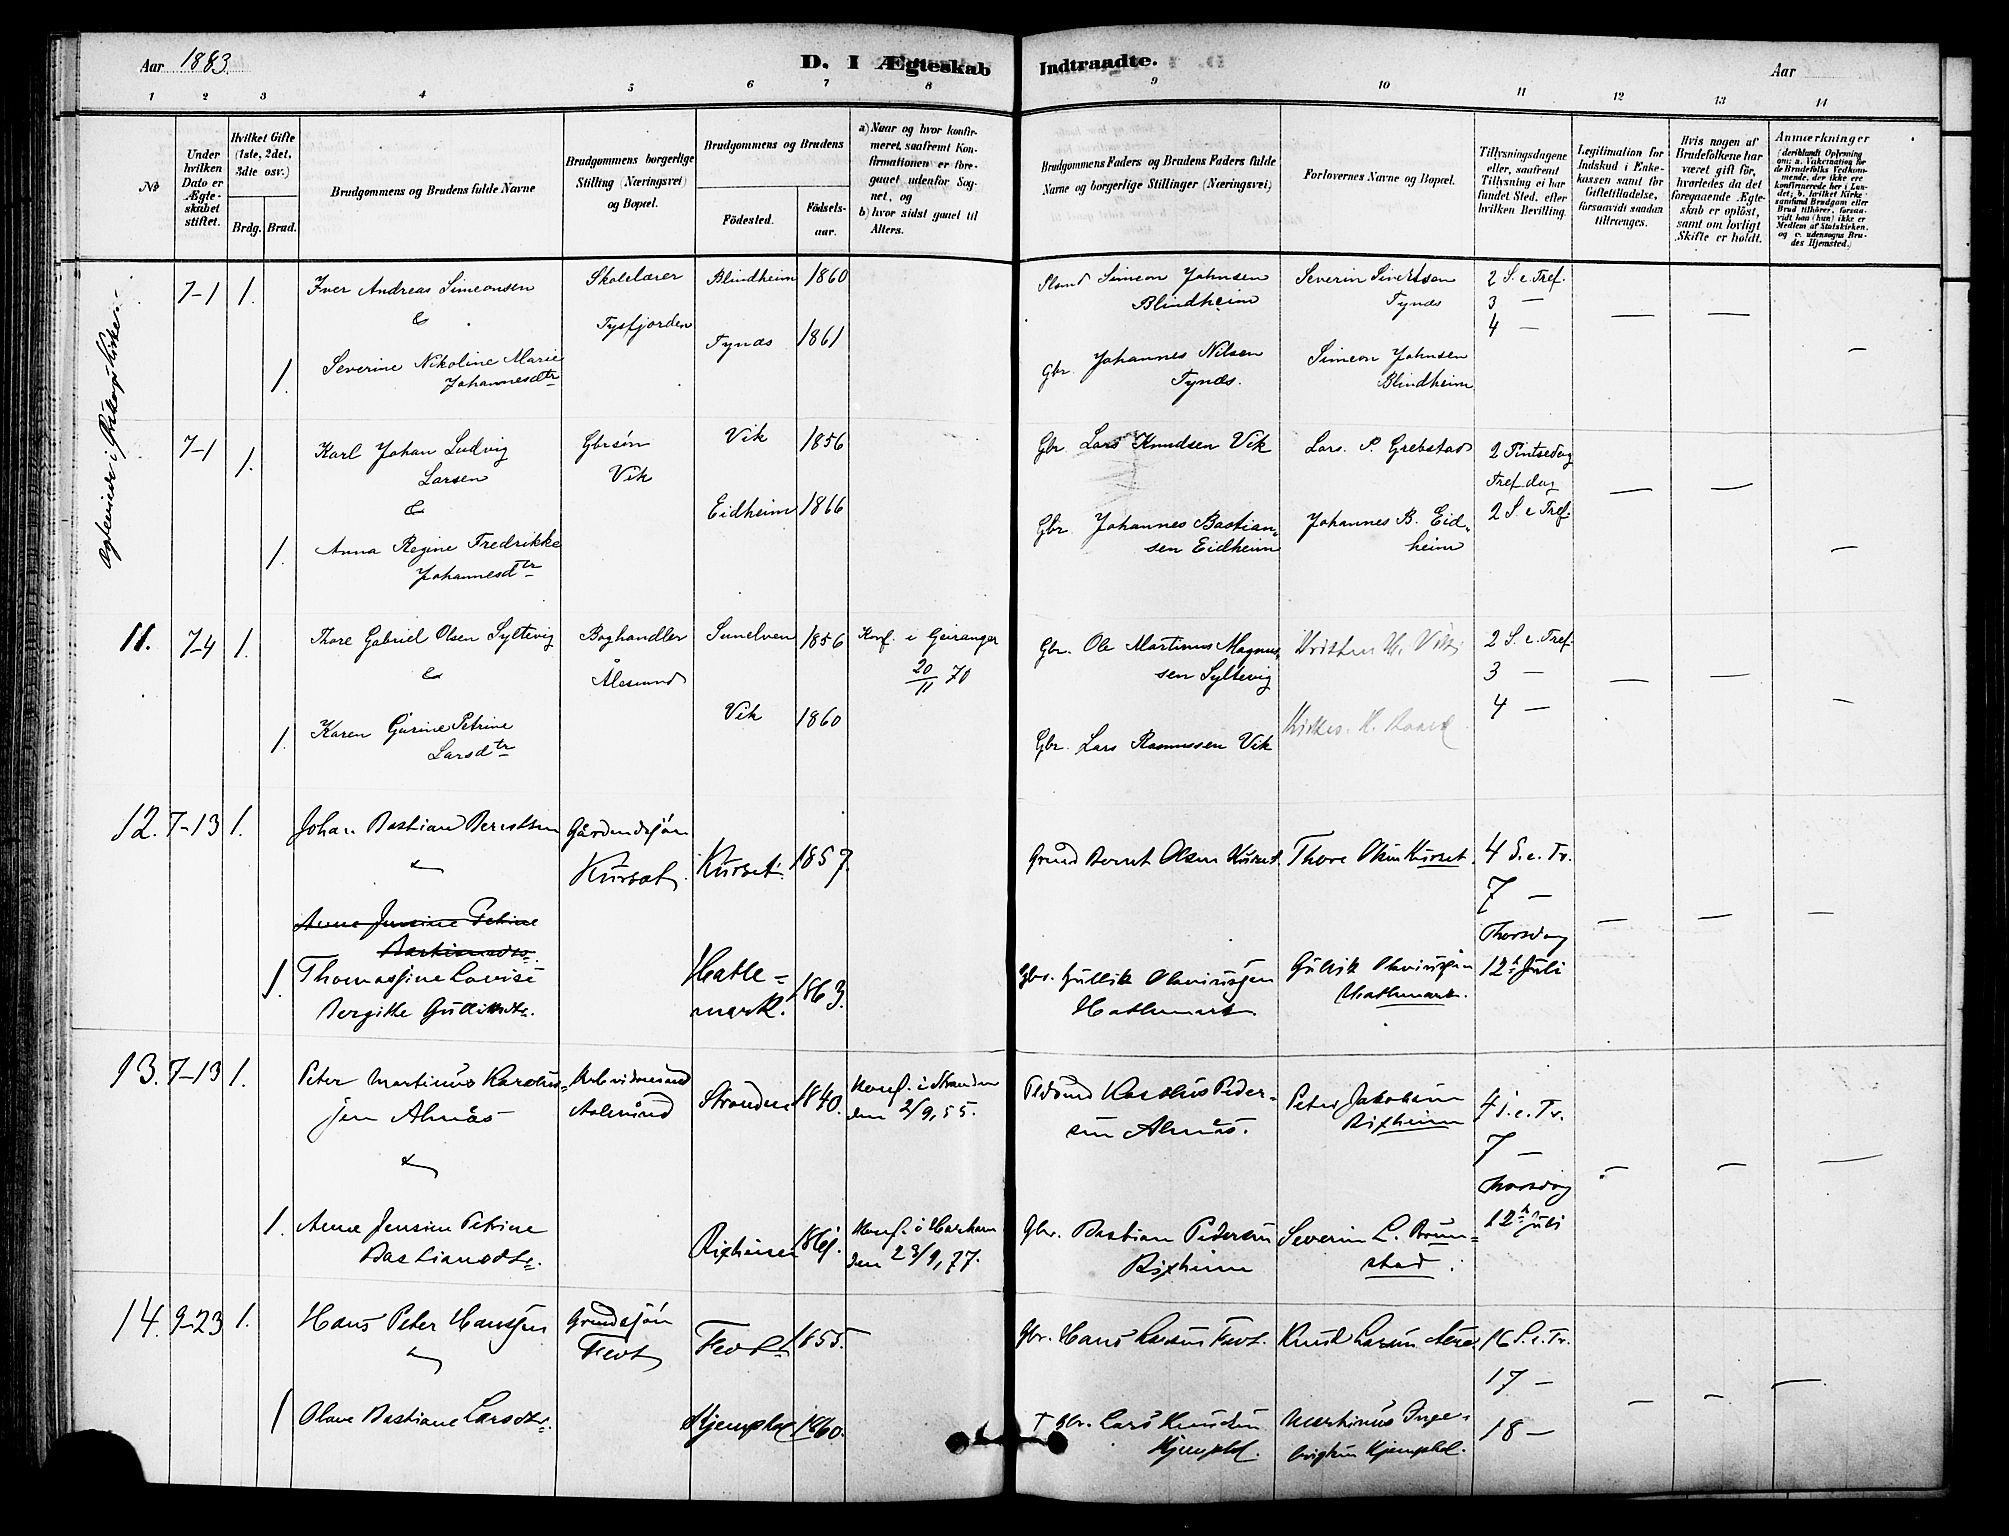 Aar 1883.
D. I Ægteskab Indtraadte.
Aar
1 2 3 4 5 6 7 8 9 10 11 12 13 14
No
Under hvilken Dato er Ægteskabet stiftet.
Hvilket Gifte (1ste, 2det, 3die osv.)
Brdg. Brud.
Brudgommens og Brudens fulde Navne
Brudgommens borgerlige Stilling (Næringsvei) og Bopæl.
Brudgommens og Brudens
Födested.
Födselsaar.
a) Naar og hvor konfirmeret, saafremt Konfirmationen er foregaaet udenfor Sognet, og
b) hvor sidst gaaet til Alters.
Brudgommens Faders og Brudens Faders fulde Navne og borgerlige Stillinger (Næringsvei)
Forlovernes Navne og Bopæl.
Tillysningsdagene eller, saafremt Tillysning ei har fundet Sted, efter hvilken Bevilling.
Legitimation for Indskud i Enkekassen samt for Giftetilladelse, forsaavidt saadan tiltrænges.
Hvis nogen af Brudefolkene har været gift før, hvorledes da det foregaaende Ægteskab er opløst, samt om lovligt Skifte er holdt.
Anmærkninger
(deriblandt Oplysning om: a. Vakcination for de Brudefolks Vedkommende, der ikke ere konfirmerede her i Landet; b. hvilket Kirkesamfund Brudgom eller Brud tilhörer, forsaavidt han (hun) ikke er Medlem af Statskirken, og c. udensogns Brudes Hjemsted.)
7-1 1. Iver Andreas Simeonsen Skolelærer Blindheim 1860 Simeon Johnsen Severin Sivertsen 2 S. e. Tref.
Blindheim Tynes 3 —
& Tysfjorden Tynes 1861 4 —
1. Severine Nikoline Marie Gbr. Johannes Nilsen Simeon Johnsen
Johannesdtr Tynes. Blindheim
7-1 1. Karl Johan Ludvig Gbrsön Vik 1856 Gbr Lars Knudsen Vik Lars. P. Grebstad 2 Pintsedag
Larsen Vik Tref. dag
& Eidheim 1866 Gbr Johannes Bastian- Johannes B. Eid- 2 S. e Tref.
1. Anna Regine Fredrikke sen Eidheim heim
Johannesdtr
11. 7-4 1. Thore Gabriel Olsen Syltevig Boghandler Sunelven 1856 Konf. i Geiranger Gbr. Ole Martinus Magnus- 2 S. e. Tref.
& Ålesund 20/11 70 sen Syltevig 3 —
Vik 1860 4 —
1. Karen Gurine Petrine Gbr. Lars Rasmussen Vik
Larsdtr
12. 7-13 1. Johan Bastian Berntsen Gårdmdsjön
Kurset Kurset 1857. Bernt Olsen Kurset. Thore Olsen Kurset. 4 S. e. Tr.
7 —
Anne Jensine Petrine Thorsdag
Bastiansdtr. 12te Juli
1. Thomasjine Lovise Hatle- 1863. Gbr. Gullik Gullik
Bergitte Gulliksdtr. mark. Hatlemark Hatlemark.
13. 7-13 1. Peter Martinus Karolus- Aalesund Stranden 1840. Konf. i Stranden Karolus Peder- Peter Jakobsen 4 S. e. Tr.
sen Almås den 2/9, 55. sen Almås. Rixheim 7 —
Thorsdag
1. Anne Jensine Petrine Rixheim 1861. Konf. i Harham Gbr. Bastian Pedersen Severin L. Brun- 12te Juli
Bastiansdtr. den 23/9, 77. Rixheim stad.
14. 9-23 1. Hans Peter Hansen Grmdssjön Fedt 1855. Gbr. Hans Larsen Fedt. Knud Larsen 16 S. e. Tr.
Fedt 17 —
1 Olave Bastiane Larsdtr. Kjemphol 1860. Gbr. Lars Knudsen Martinus Inge- 18 —
Kjemphol. Kjemphol.